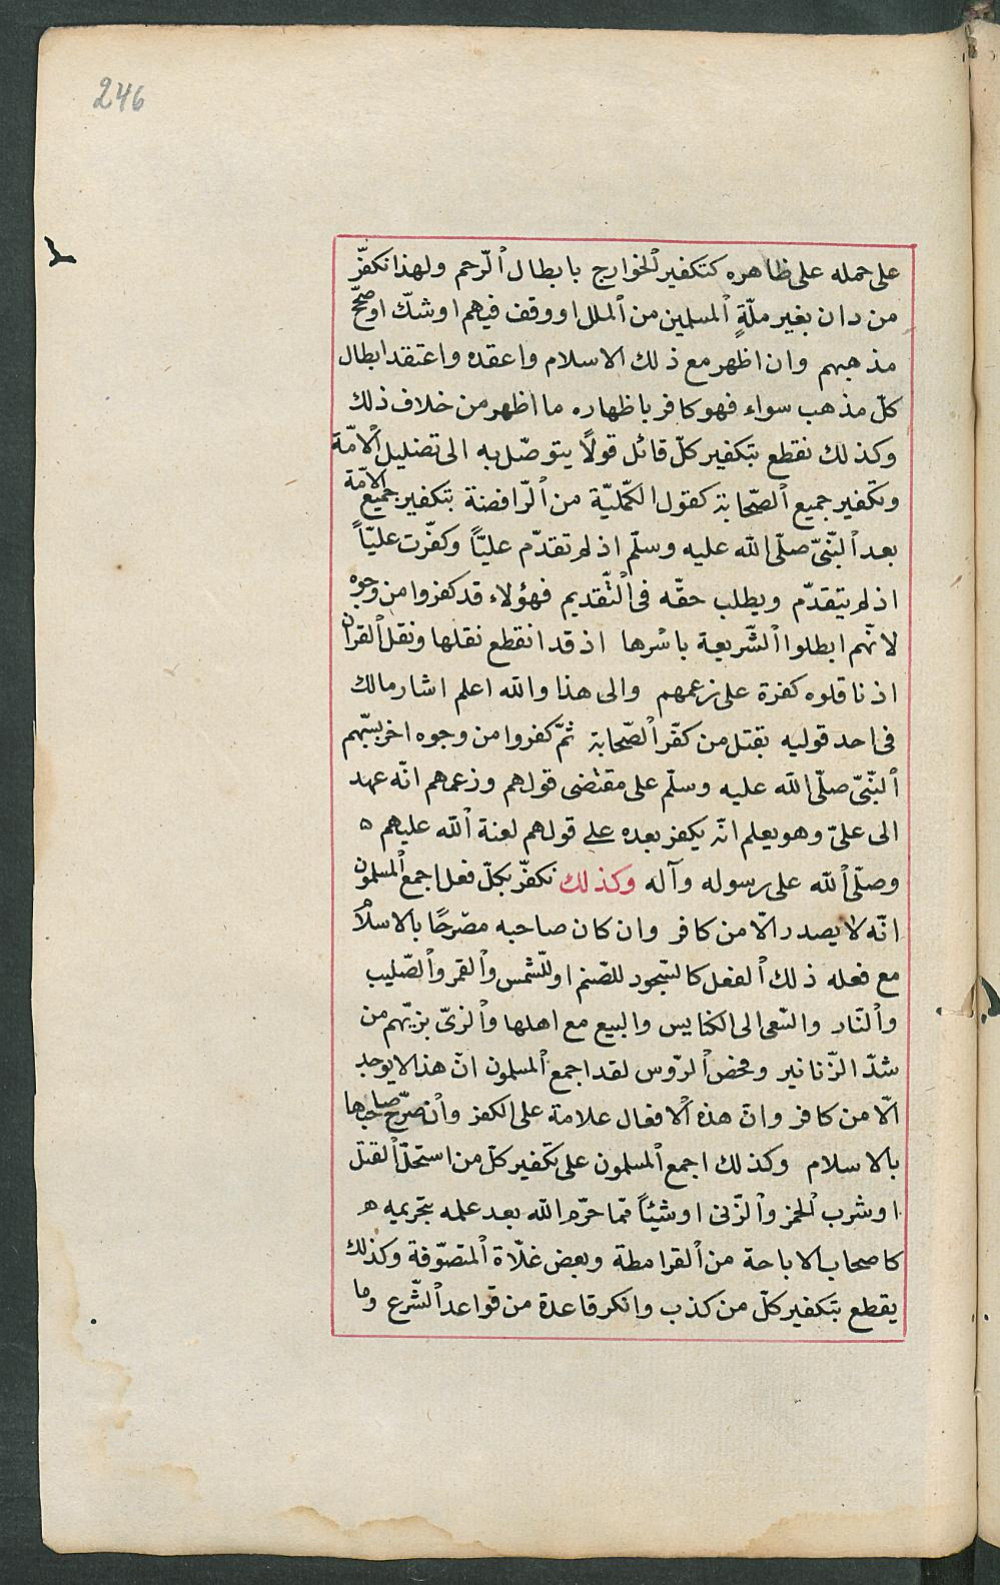 246
على حمله على ظاهره كتكفير الخوارج بابطال الرّجم ولهذا نكفّر
من دان بغير ملّةٍ المسلمين من الملل او وقف فيهم او شكّ او صحّح
مذهبهم وان اظهر مع ذلك الاسلام واعقده واعتقد ابطال
كلّ مذهب سواء فهو كافر باظهاره ما اظهر من خلاف ذلك
وكذلك نقطع بتكفير كلّ قائل قولاً يتوصّل به الى تضليل الامّة
وتكفير جميع الصّحابة كقول الكمّليّة من الرّافضة بتكفير جميع الامّة
بعد النّبىّ صلّى الله عليه وسلّم اذ لم تقدّم عليّاً وكفّرت عليّاً
اذ لم يتقدّم ويطلب حقّه فى التّقديم فهؤلاء قد كفروا من وجوه
لانّهم ابطلوا الشّريعة باسرها اذ قد انقطع نقلها ونقل القران
اذ ناقلوه كفرة على زعمهم والى هذا والله اعلم اشار مالك
فى احد قوليه بقتل من كفّر الصّحابة ثمّ كفروا من وجوه اخر بسبّهم
النّبىّ صلّى الله عليه وسلّم على مقتضى قولهم وزعمهم انّه عهد
الى علىّ وهو يعلم انّه يكفر بعده على قولهم لعنة الله عليهم ه
وصلّى الله على رسوله وآله وكذلك نكفّر بكلّ فعل اجمع المسلمون
انّه لا يصدر الّا من كافر وان كان صاحبه مصّرحًا بالاسلام
مع فعله ذلك الفعل كالسّجود للصّنم او للشّمس والقمر والصّليب
والنّار والسّعى الى الكنايس والبيع مع اهلها والزىّ بزيّهم من
شدّ الزّنانير وفحض الرّوس لقد اجمع المسلمون انّ هذا لا يوجد
الّا من كافر وانّ هذه الافعال علامة على الكفر وان صرّح صاحبها
بالاسلام وكذلك اجمع المسلمون على تكفير كلّ من استحلّ القتل
او شرب الخمر والزّنى او شيئاً ممّا حرّم الله بعد علمه بتحريمه ه
كاصحاب الاباحة من القرامطة وبعض غلّاة المتصوّفة وكذلك
يقطع بتكفير كلّ من كذب وانكر قاعدة من قواعد الشّرع وما